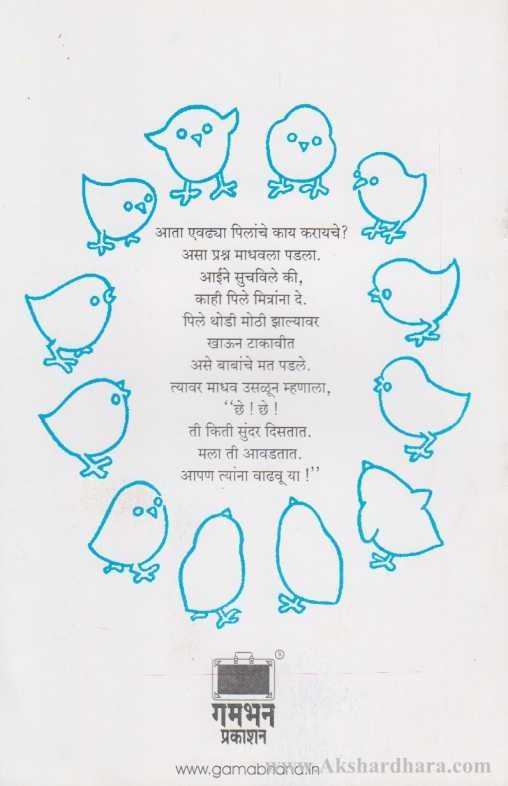 आता एवढ्या पिलांचे काय करायचे?
असा प्रश्न माधवला पडला.
आईने सुचविले की,
काही पिले मित्रांना दे.
पिले थोडी मोठी झाल्यावर
खाऊन टाकावीत
असे बाबांचे मत पडले.
त्यावर माधव उसळून म्हणाला,
“छे ! छे !
ती किती सुंदर दिसतात.
मला ती आवडतात.
आपण त्यांना वाढवू या !”
®
गमभन
प्रकाशन
www.gamabhana.in
www.Akshardhara.com